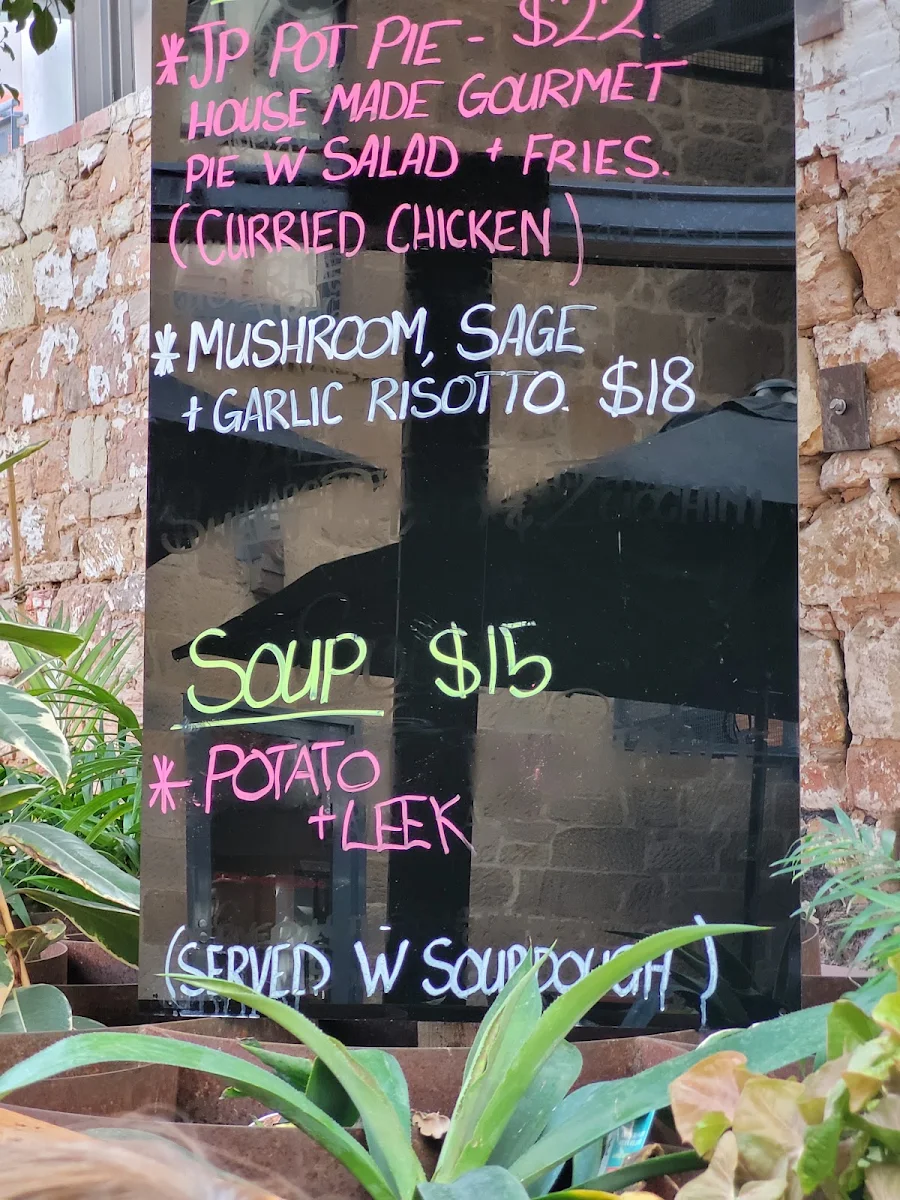 *JP POT PIE - $22.
HOUSE MADE GOURMET
PIE W̄ SALAD + FRIES.
(CURRIED CHICKEN)
*MUSHROOM, SAGE
+ GARLIC RISOTTO. $18
ZUCCHINI
SOUP $15
* POTATO
+ LEEK
(SERVED W̄ SOURDOUGH)